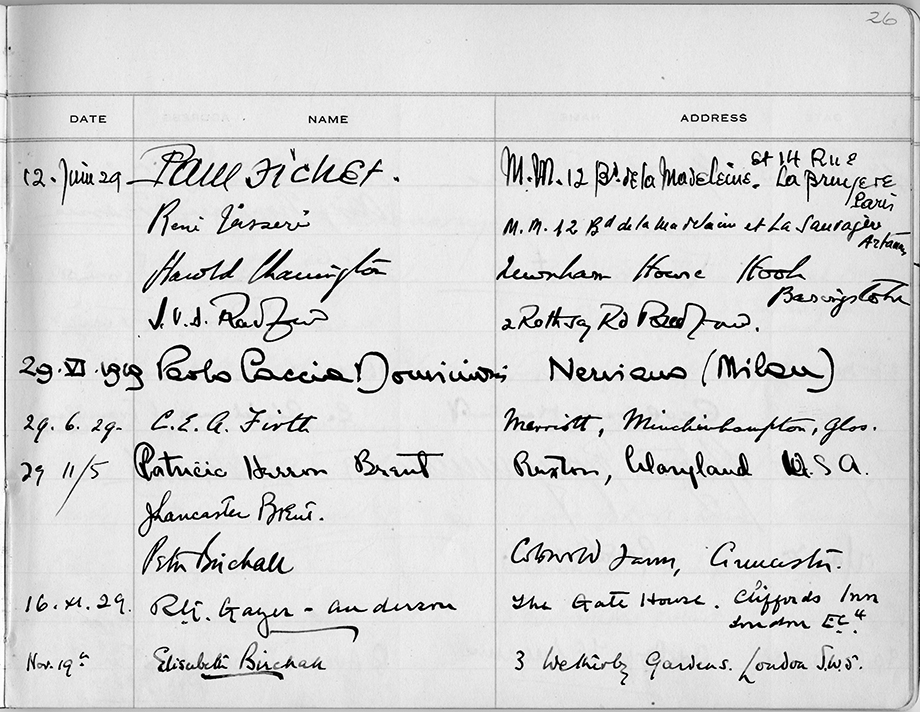 26
DATE NAME ADDRESS
12. Juin 29 Paul Fichet. M.M. 12 Bd. de la Madeleine. et 14 Rue
La Bruyere
Paris
René M.M. 12 Bd de la Madelaine et La Sauvagère
Harold Charrington House Hook
Basingstoke
2 Rothsay Rd Bedford.
29.VI.1929 Paolo Caccia Dominioni Nerviano (Milan)
29.6.29- C.E.A. Firth Merriott, Minchinhampton, Glos.
29 11/5 Patricia Herron Brent Ruxton, Maryland U.S.A.
J Lancaster Brent.
Peter Birchall Cotswold Farm, Cirencester.
16.XI.29. Gayer-Anderson The Gate House. Cliffords Inn
London EC4
Nov. 19th Elisabeth Birchall 3 Wetherby Gardens. London S.W.5.